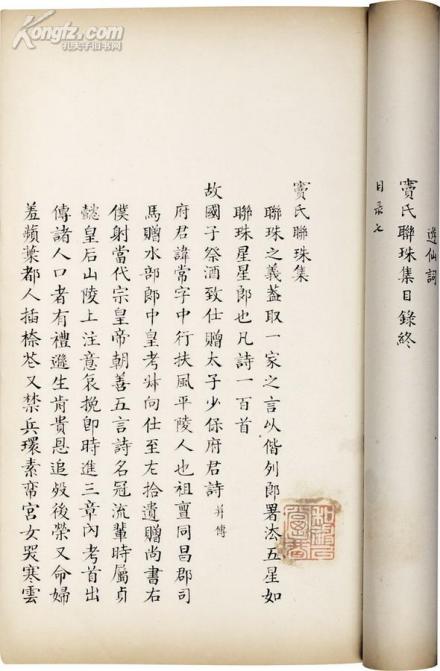 遊仙詞
竇氏聯珠集目錄終
目录七
竇氏聯珠集
聯珠之義蓋取一家之言以偕列郎署法五星如
聯珠星星郎也凡詩一百首
故國子祭酒致仕贈太子少保府君詩并傳
府君諱常字中行扶風平陵人也祖亶同昌郡司
馬贈水部郎中皇考叔向仕至左拾遺贈尚書右
僕射當代宗皇帝朝善五言詩名冠流輩時屬貞
懿皇后山陵上注意哀挽即時進三章內考首出
傳諸人口者有禮遲生肯貴恩追歿後榮又命婦
羞蘋葉都人插柰花又禁兵環素帟宮女哭寒雲
Kongfz.com
孔夫子旧书网